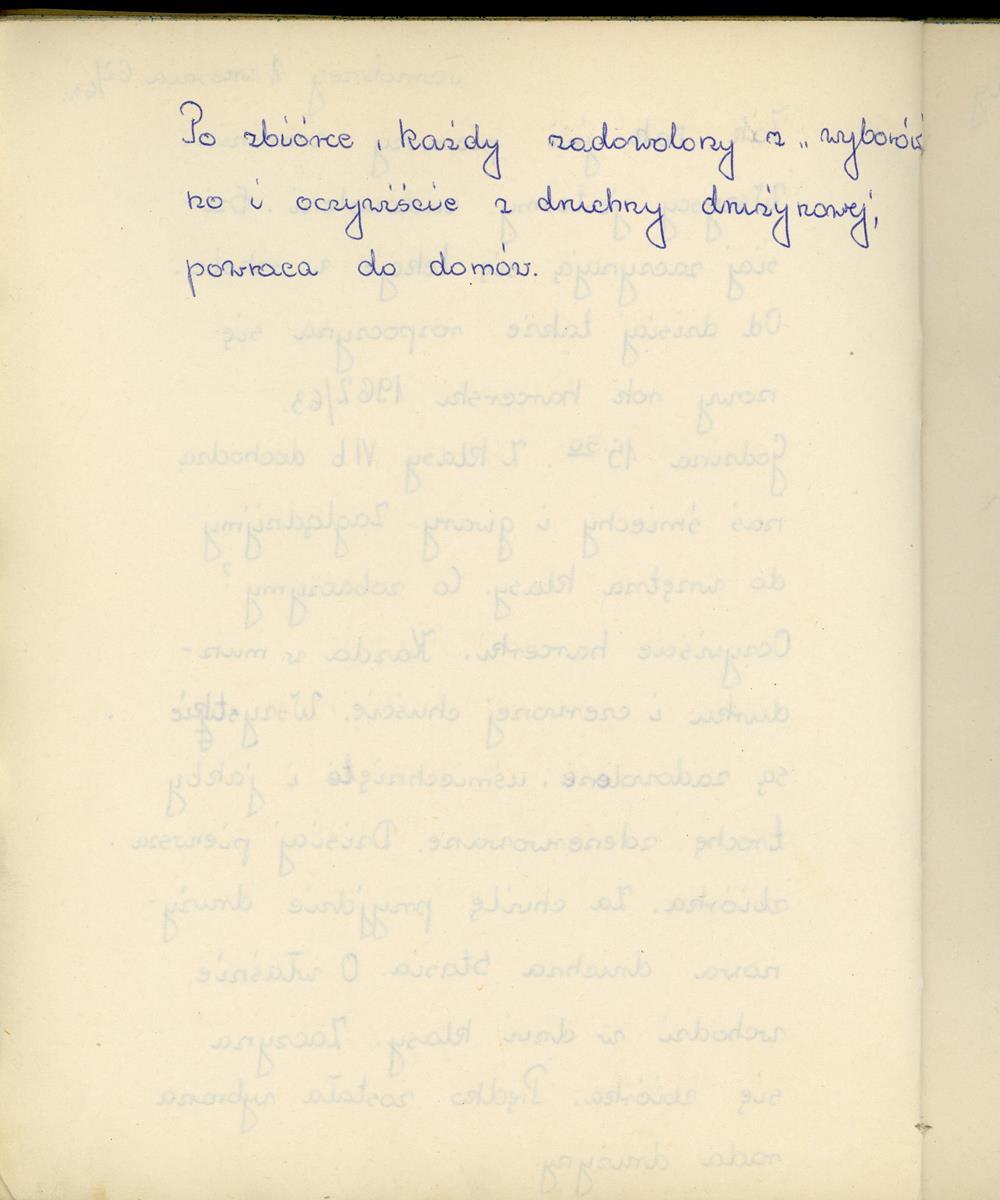 Po zbiórce, każdy zadowolony z „wyborów
no i oczywiście z druchny drużynowej,
powraca do domów.